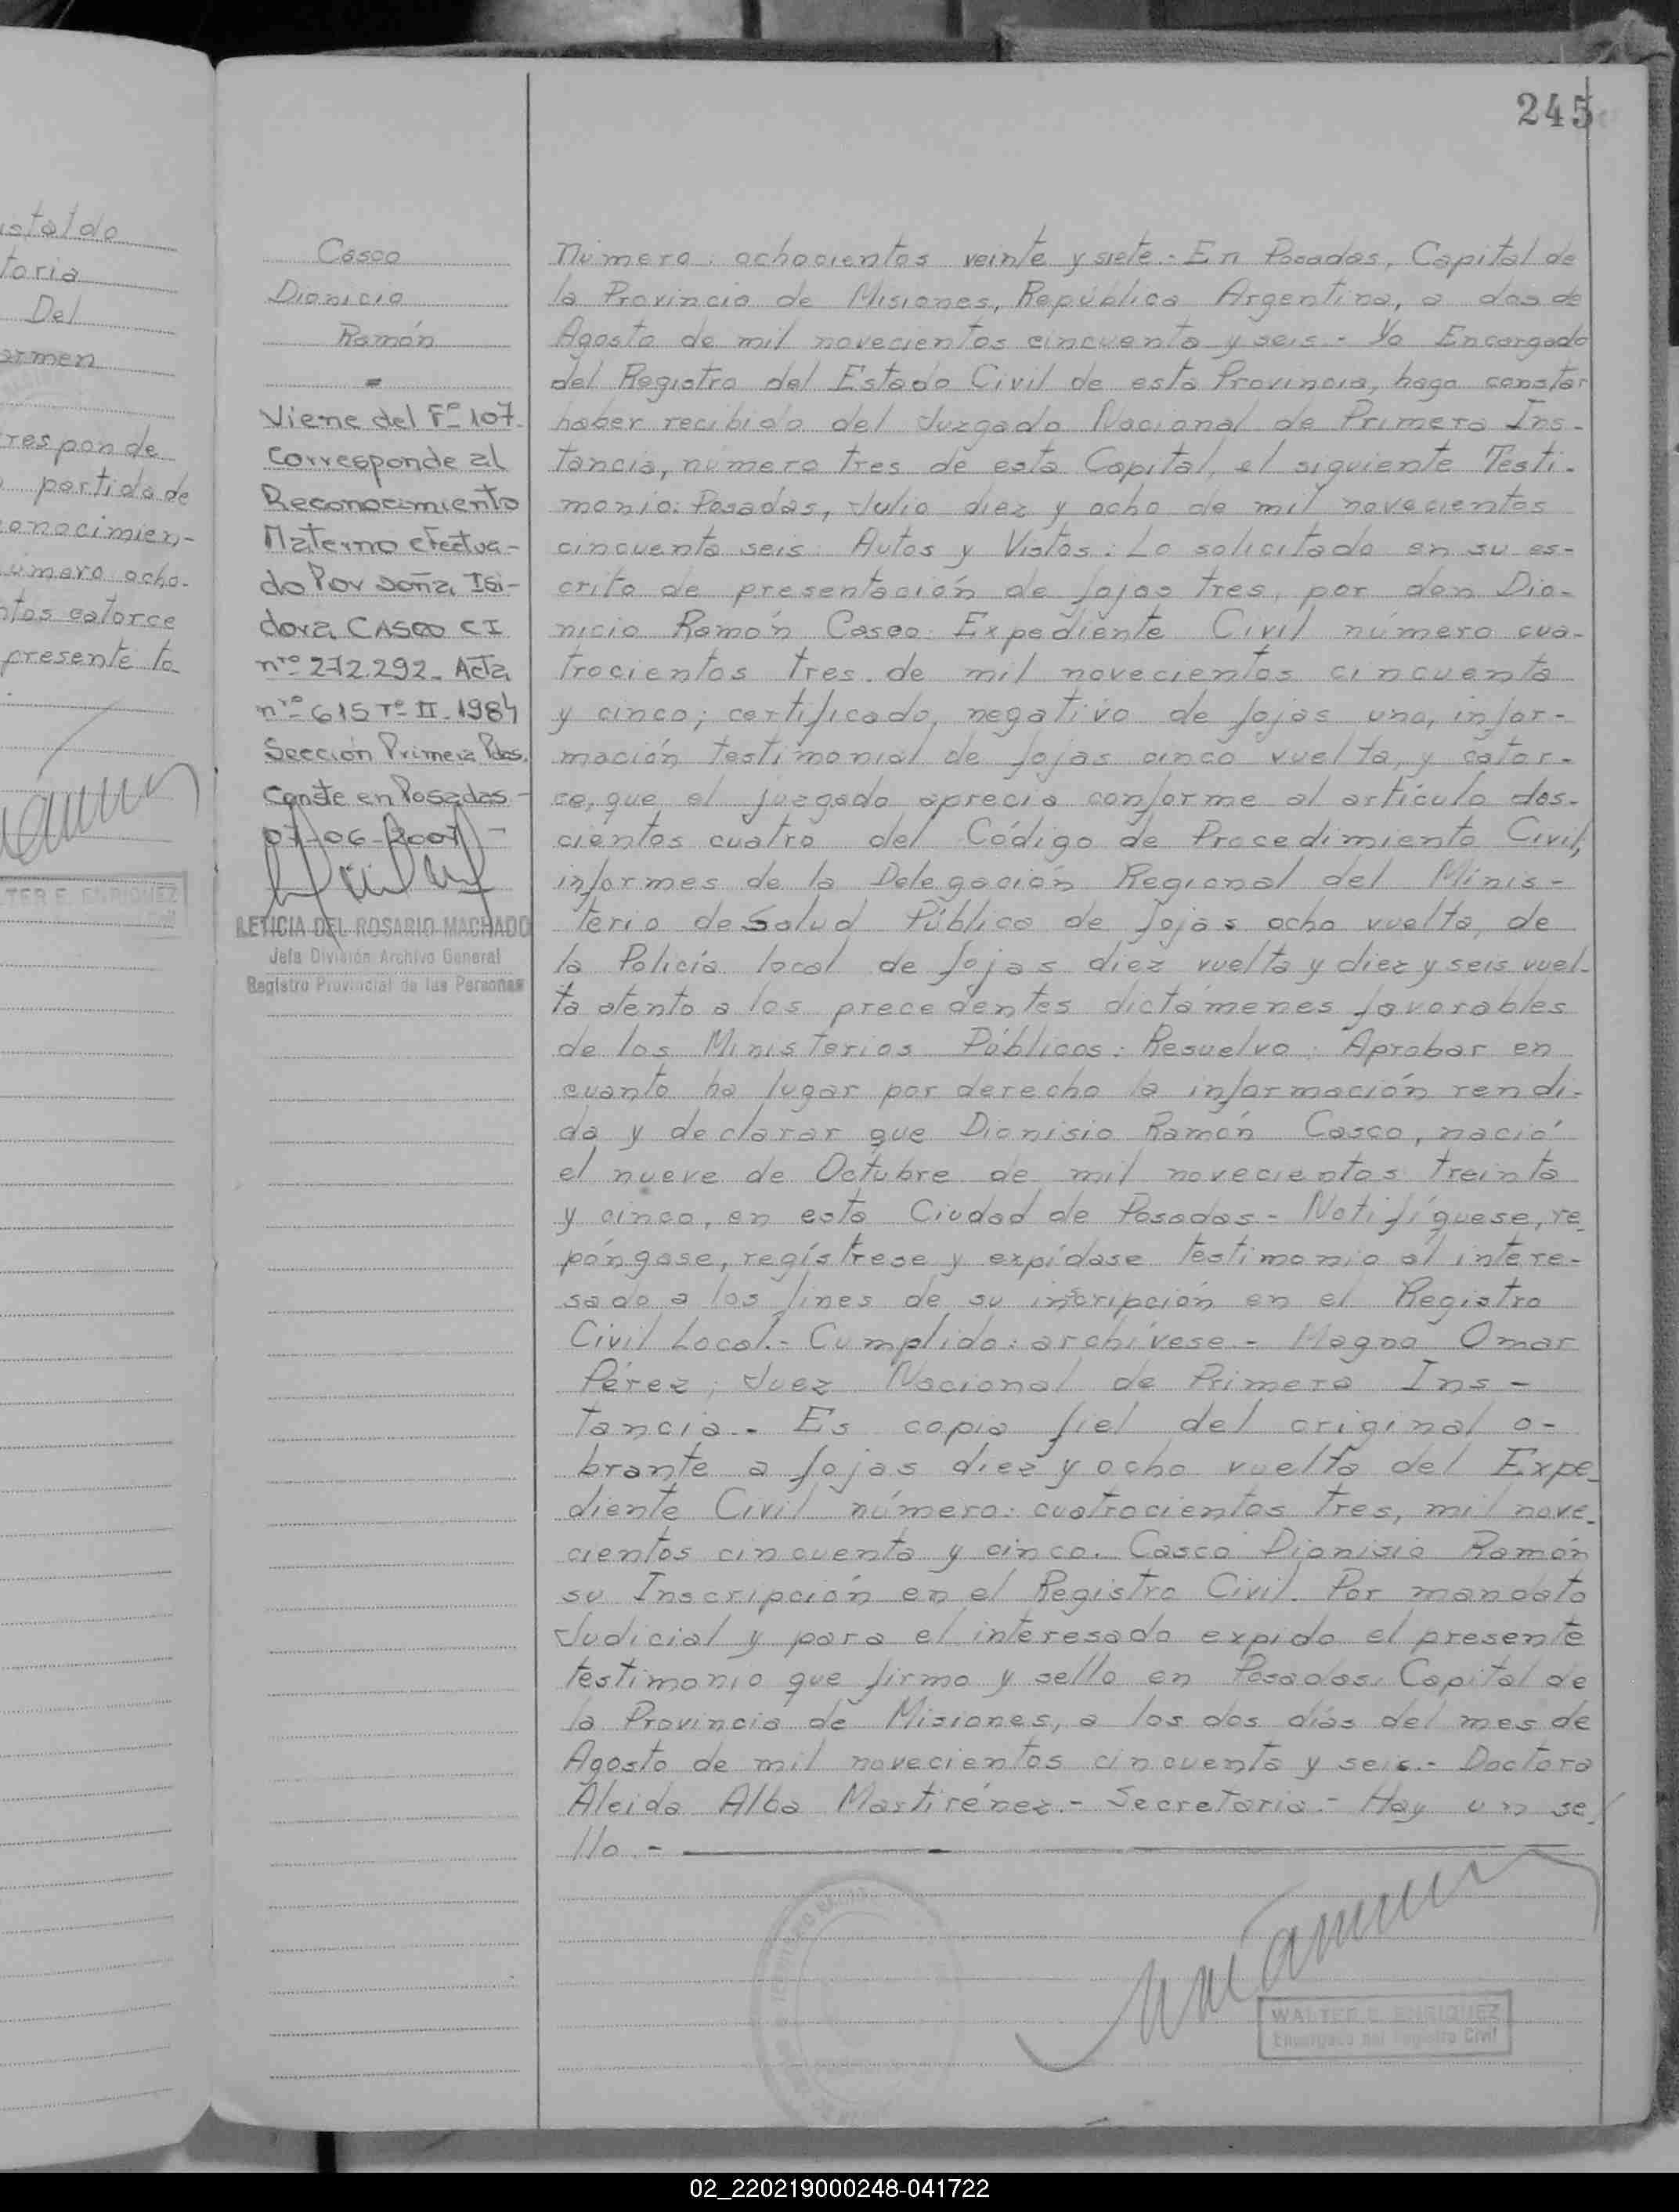 245
istaldo
toria
Del
armen
respon de
partida de
onocimien-
úmero ocho-
ntos catorce
presente to
LTER E. ENRIQUEZ
Casco
Dionicio
Ramón
Viene del Fº 107.
Corresponde al
Reconocimiento
Materno efectua-
do Por doña Isi-
dora CASCO CI
nro 272.292. Acta
nro 615 Tº II. 1984
Sección Primera Pdas.
Conste en Posadas -
07-06-2007 -
LETICIA DEL ROSARIO MACHADO
Jefa División Archivo General
Registro Provincial de las Personas
Número: ochocientos veinte y siete.- En Posadas, Capital de
la Provincia de Misiones, República Argentina, a dos de
Agosto de mil novecientos cincuenta y seis.- Yo Encargado
del Registro del Estado Civil de esta Provincia, hago constar
haber recibido del Juzgado Nacional de Primera Ins-
tancia, número tres de esta Capital, el siguiente Testi-
monio: Posadas, Julio diez y ocho de mil novecientos
cincuenta seis. Autos y Vistos: Lo solicitado en su es-
crito de presentación de fojas tres, por don Dio-
nicio Ramón Casco. Expediente Civil número cua-
trocientos tres. de mil novecientos cincuenta
y cinco; certificado, negativo de fojas una, infor-
mación testimonial de fojas cinco vuelta, y cator-
ce, que el juzgado aprecia conforme al artículo dos-
cientos cuatro del Código de Procedimiento Civil,
informes de la Delegación Regional del Minis-
terio de Salud Pública de fojas ocho vuelta, de
la Policía local de fojas diez vuelta y diez y seis vuel-
ta atento a los precedentes dictámenes favorables
de los Ministerios Públicos: Resuelvo: Aprobar en
cuanto ha lugar por derecho la información rendi-
da y declarar que Dionisio Ramón Casco, nació
el nueve de Octubre de mil novecientos treinta
y cinco, en esta Ciudad de Posadas.- Notifíquese, re-
póngase, regístrese y expídase testimonio al intere-
sado a los fines de su inscripción en el Registro
Civil Local.- Cumplido: archívese.- Magno Omar
Pérez, Juez Nacional de Primera Ins-
tancia.- Es copia fiel del original o-
brante a fojas diez y ocho vuelta del Expe-
diente Civil número: cuatrocientos tres, mil nove-
cientos cincuenta y cinco. Casco Dionisio Ramón
su Inscripción en el Registro Civil. Por mandato
Judicial y para el interesado expido el presente
testimonio que firmo y sello en Posadas. Capital de
la Provincia de Misiones, a los dos días del mes de
Agosto de mil novecientos cincuenta y seis.- Doctora
Aleida Alba Martirénez.- Secretaria.- Hay un se-
llo.-
WALTER E. ENRIQUEZ
Encargado del Registro Civil
02_220219000248-041722